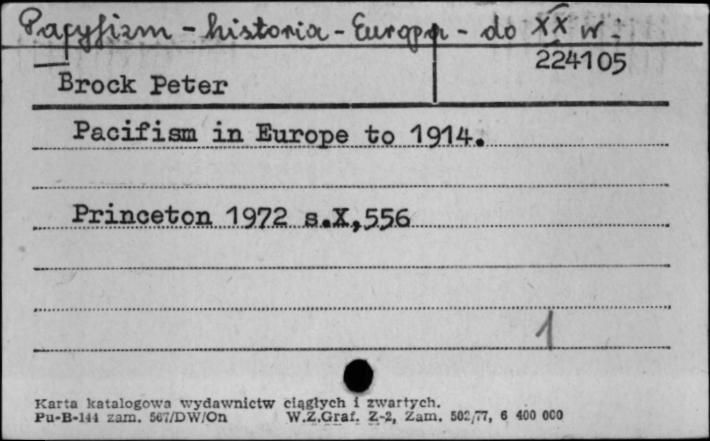 Pacyfizm - historia - Europa - do XX w.
224105
Brock Peter
Pacifism in Europe to 1914.
Princeton 1972 s.X,556
1
Karta katalogowa wydawnictw ciągłych i zwartych.
Pu-B-144 zam. 567/DW/On W.Z.Graf. Z-2, Zam. 502/77, 6 400 000